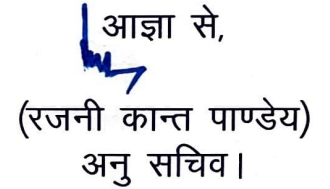 आज्ञा से,
(रजनी कान्त पाण्डेय)
अनु सचिव।